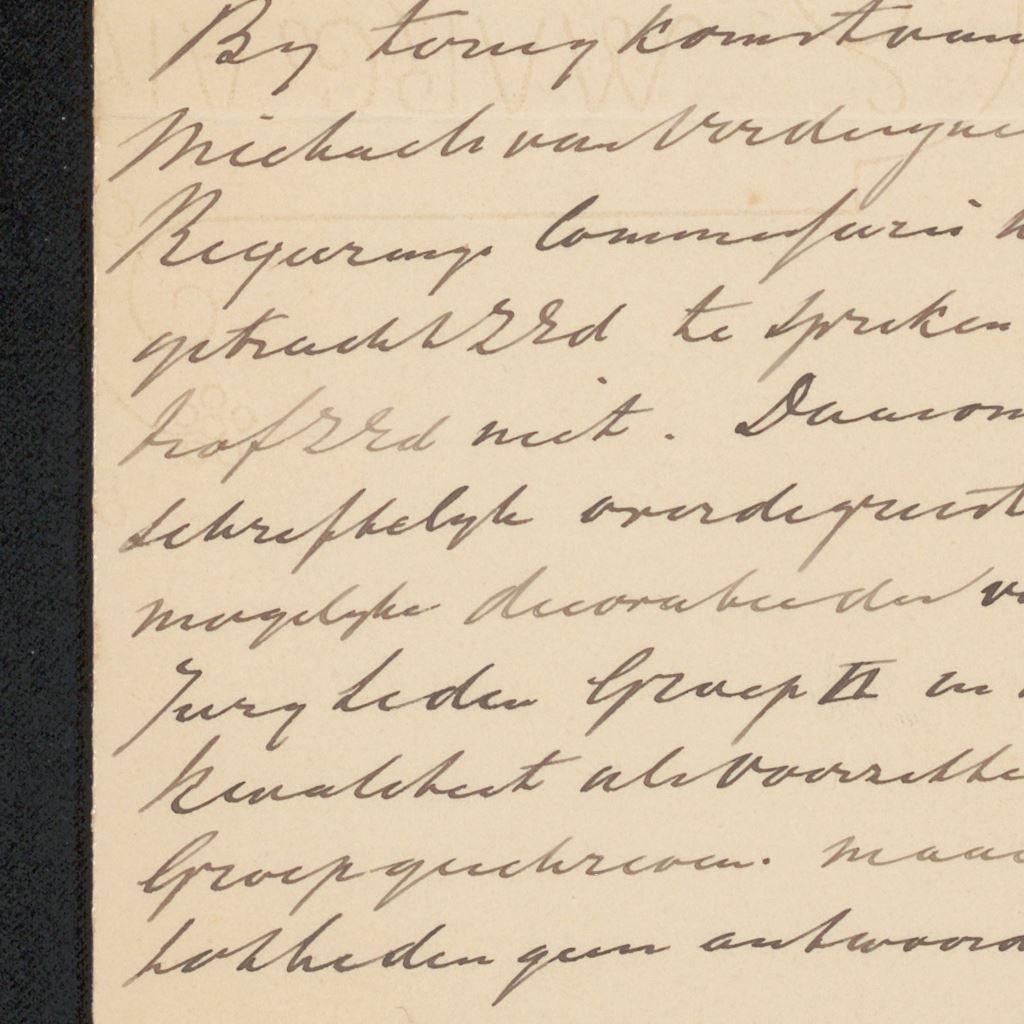 By terug komst van
Michaels van Verduynen
Regeerings Commissaris
getracht ZEd te spreken
trof ZEd niet. Daarom
schriftelyk over de quest
mogelyke decoratie der
Jury Leden Groep II en
kwaliteit als Voorzitte
Groep geschreven. maar
tot heden geen antwoord